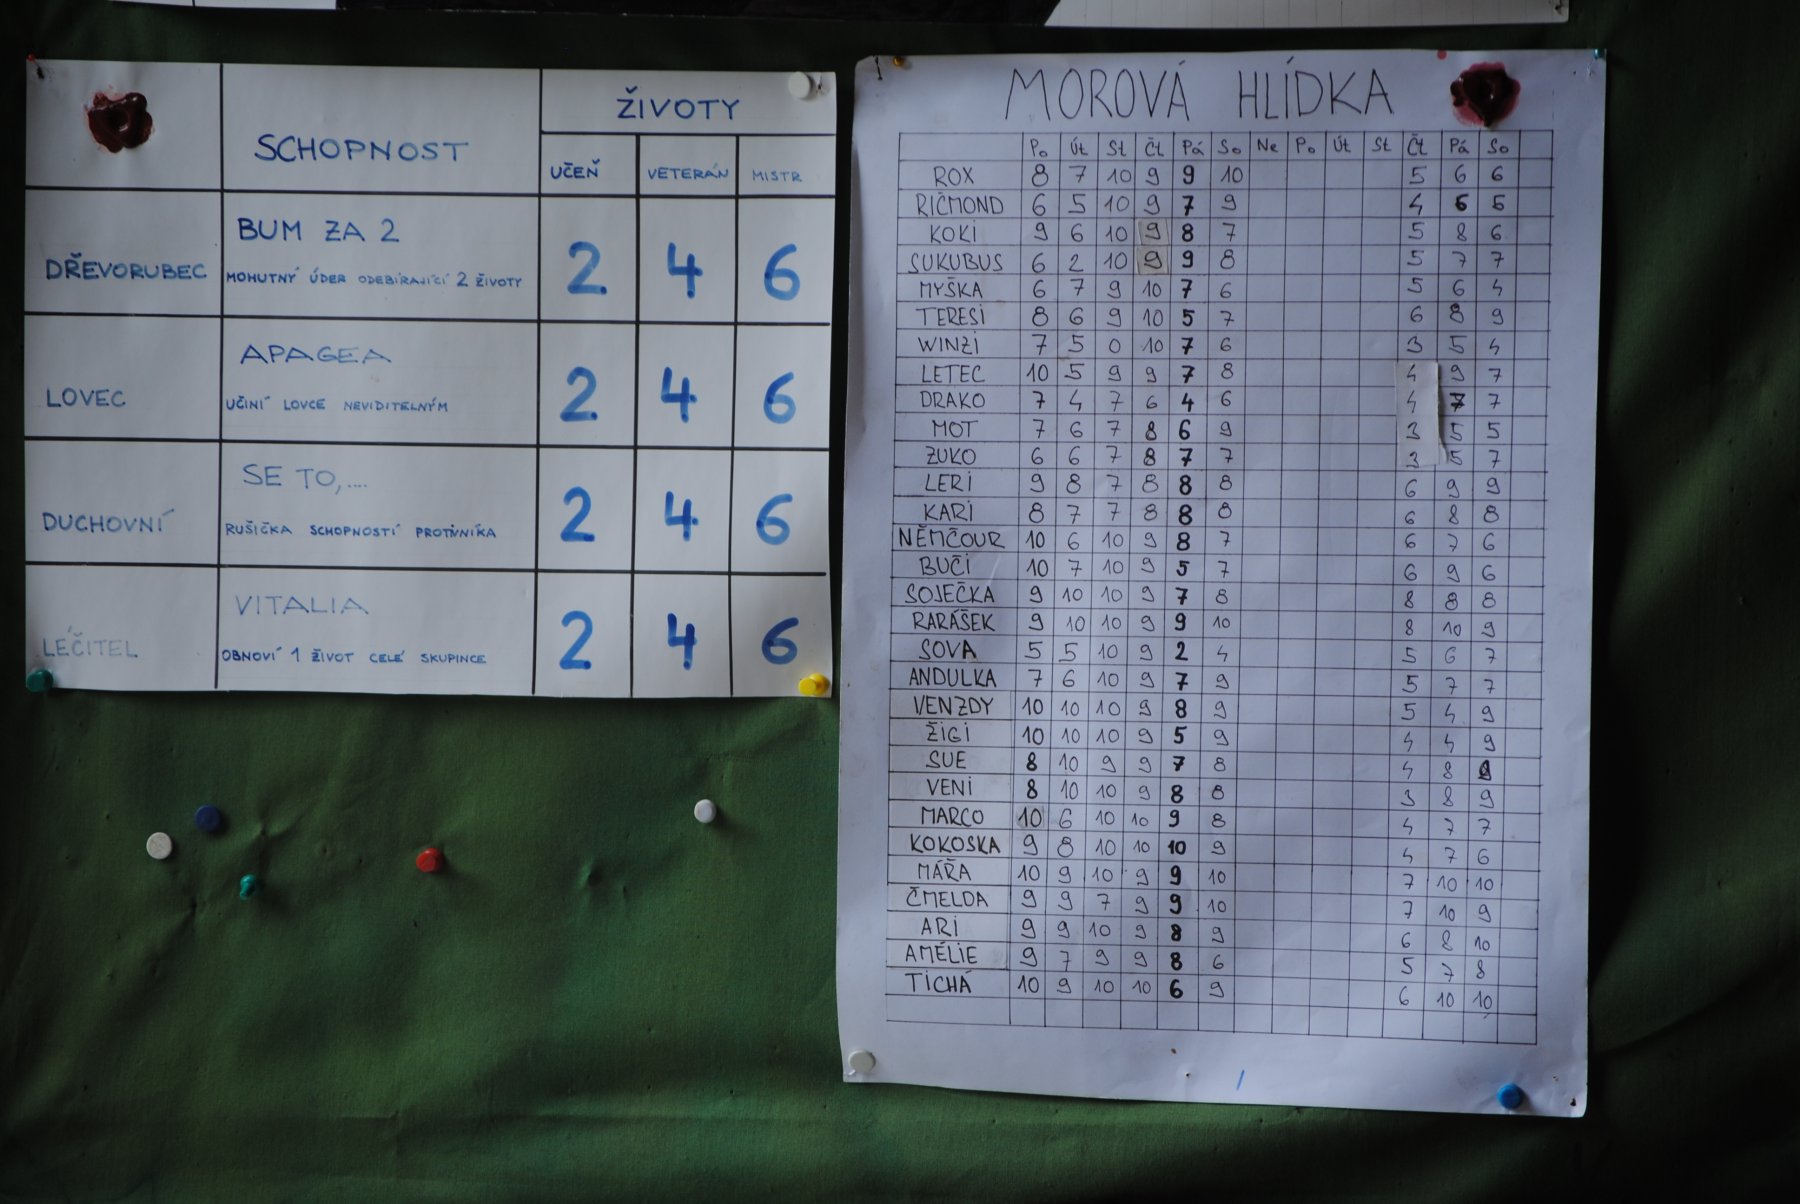 SCHOPNOST ŽIVOTY
UČEŇ VETERÁN MISTR
DŘEVORUBEC BUM ZA 2 2 4 6
MOHUTNÝ ÚDER ODEBÍRAJÍCÍ 2 ŽIVOTY
LOVEC APAGEA 2 4 6
UČINÍ LOVCE NEVIDITELNÝM
DUCHOVNÍ SE TO,.... 2 4 6
RUŠIČKA SCHOPNOSTÍ PROTIVNÍKA
LÉČITEL VITALIA 2 4 6
OBNOVÍ 1 ŽIVOT CELÉ SKUPINCE
MOROVÁ HLÍDKA
Po Út St Čt Pá So Ne Po Út St Čt Pá So
ROX 8 7 10 9 9 10 5 6 6
RIČMOND 6 5 10 9 7 9 4 6
KOKI 9 6 10 9 8 7 5 8 6
SUKUBUS 6 2 10 9 9 8 5 7 7
MYŠKA 6 7 9 10 7 6 5 6 4
TERESI 8 6 9 10 5 7 6 8 9
WINZI 7 5 0 10 7 6 3 5 4
LETEC 10 5 9 9 7 8 4 9 7
DRAKO 7 4 7 6 4 6 4 7 7
MOT 7 6 7 8 6 9 3 5 5
ZUKO 6 6 7 8 7 7 3 5 7
LERI 9 8 7 8 8 8 6 9 9
KARI 8 7 7 8 8 8 6 8 8
NĚMČOUR 10 6 10 9 8 7 6 7 6
BUČI 10 7 10 9 5 7 6 9 6
SOJEČKA 9 10 10 9 7 8 8 8 8
RARÁŠEK 9 10 10 9 9 10 8 10 9
SOVA 5 5 10 9 2 4 5 6 7
ANDULKA 7 6 10 9 7 9 5 7 7
VENZDY 10 10 10 9 8 9 5 4 9
ŽIGI 10 10 10 9 5 9 4 4 9
SUE 8 10 9 9 7 8 4 8
VENI 8 10 10 9 8 8 3 8 9
MARCO 10 6 10 10 9 8 4 7 7
KOKOSKA 9 8 10 10 10 9 4 7 6
MÁŘA 10 9 10 9 9 10 7 10 10
ČMELDA 9 9 7 9 9 10 7 10 9
ARI 9 9 10 9 8 9 6 8 10
AMÉLIE 9 7 9 9 8 6 5 7 8
TICHÁ 10 9 10 10 6 9 6 10 10